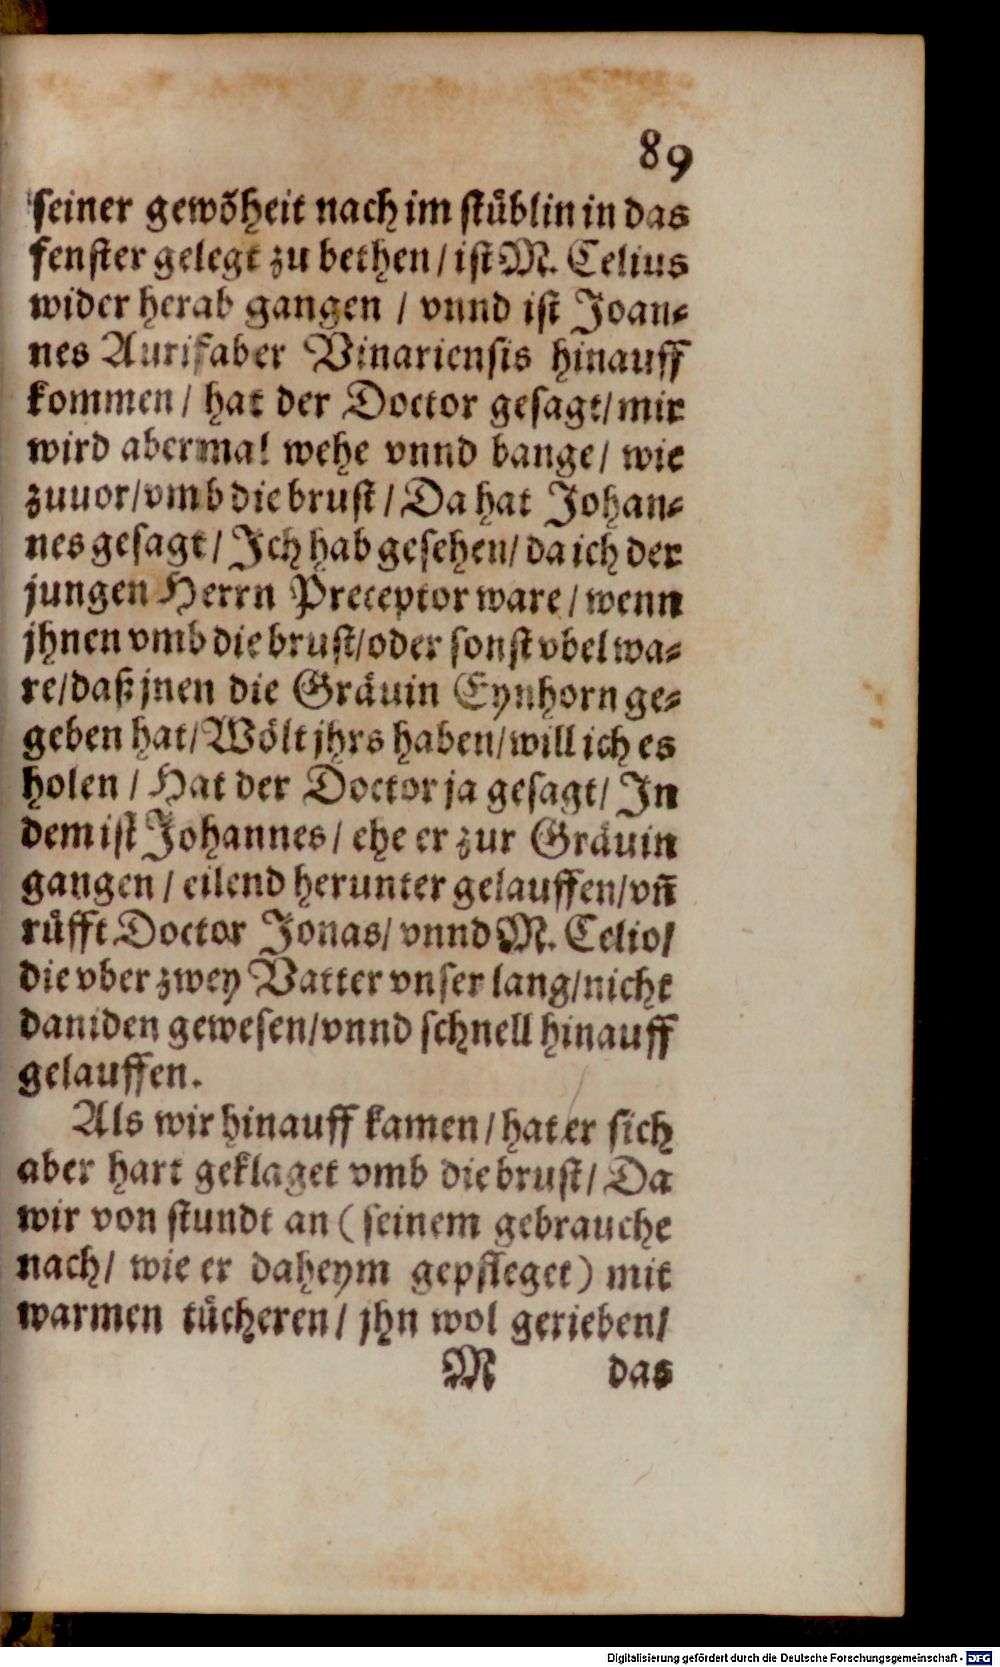 89
seiner gewõheit nach im stüblin in das
fenster gelegt zu bethen / ist M. Celius
wider herab gangen / vnnd ist Joan⸗
nes Aurifaber Vinariensis hinauff
kommen / hat der Doctor gesagt / mir
wird abermal wehe vnnd bange / wie
zuuor / vmb die brust / Da hat Johan⸗
nes gesagt / Ich hab gesehen / da ich der
jungen Herrn Preceptor ware / wenn
jhnen vmb die brust / oder sonst vbel wa⸗
re / daß jnen die Gräuin Eynhorn ge⸗
geben hat / Wölt jhrs haben / will ich es
holen / Hat der Doctor ja gesagt / In
dem ist Johannes / ehe er zur Gräuin
gangen / eilend herunter gelauffen / vñ
rüfft Doctor Jonas / vnnd M. Celio /
die vber zwey Vatter vnser lang / nicht
daniden gewesen / vnnd schnell hinauff
gelauffen.
Als wir hinauff kamen / hat er sich
aber hart geklaget vmb die brust / Da
wir von stundt an ( seinem gebrauche
nach / wie er daheym gepfleget ) mit
warmen tücheren / jhn wol gerieben /
M das
Digitalisierung gefördert durch die Deutsche Forschungsgemeinschaft - DFG